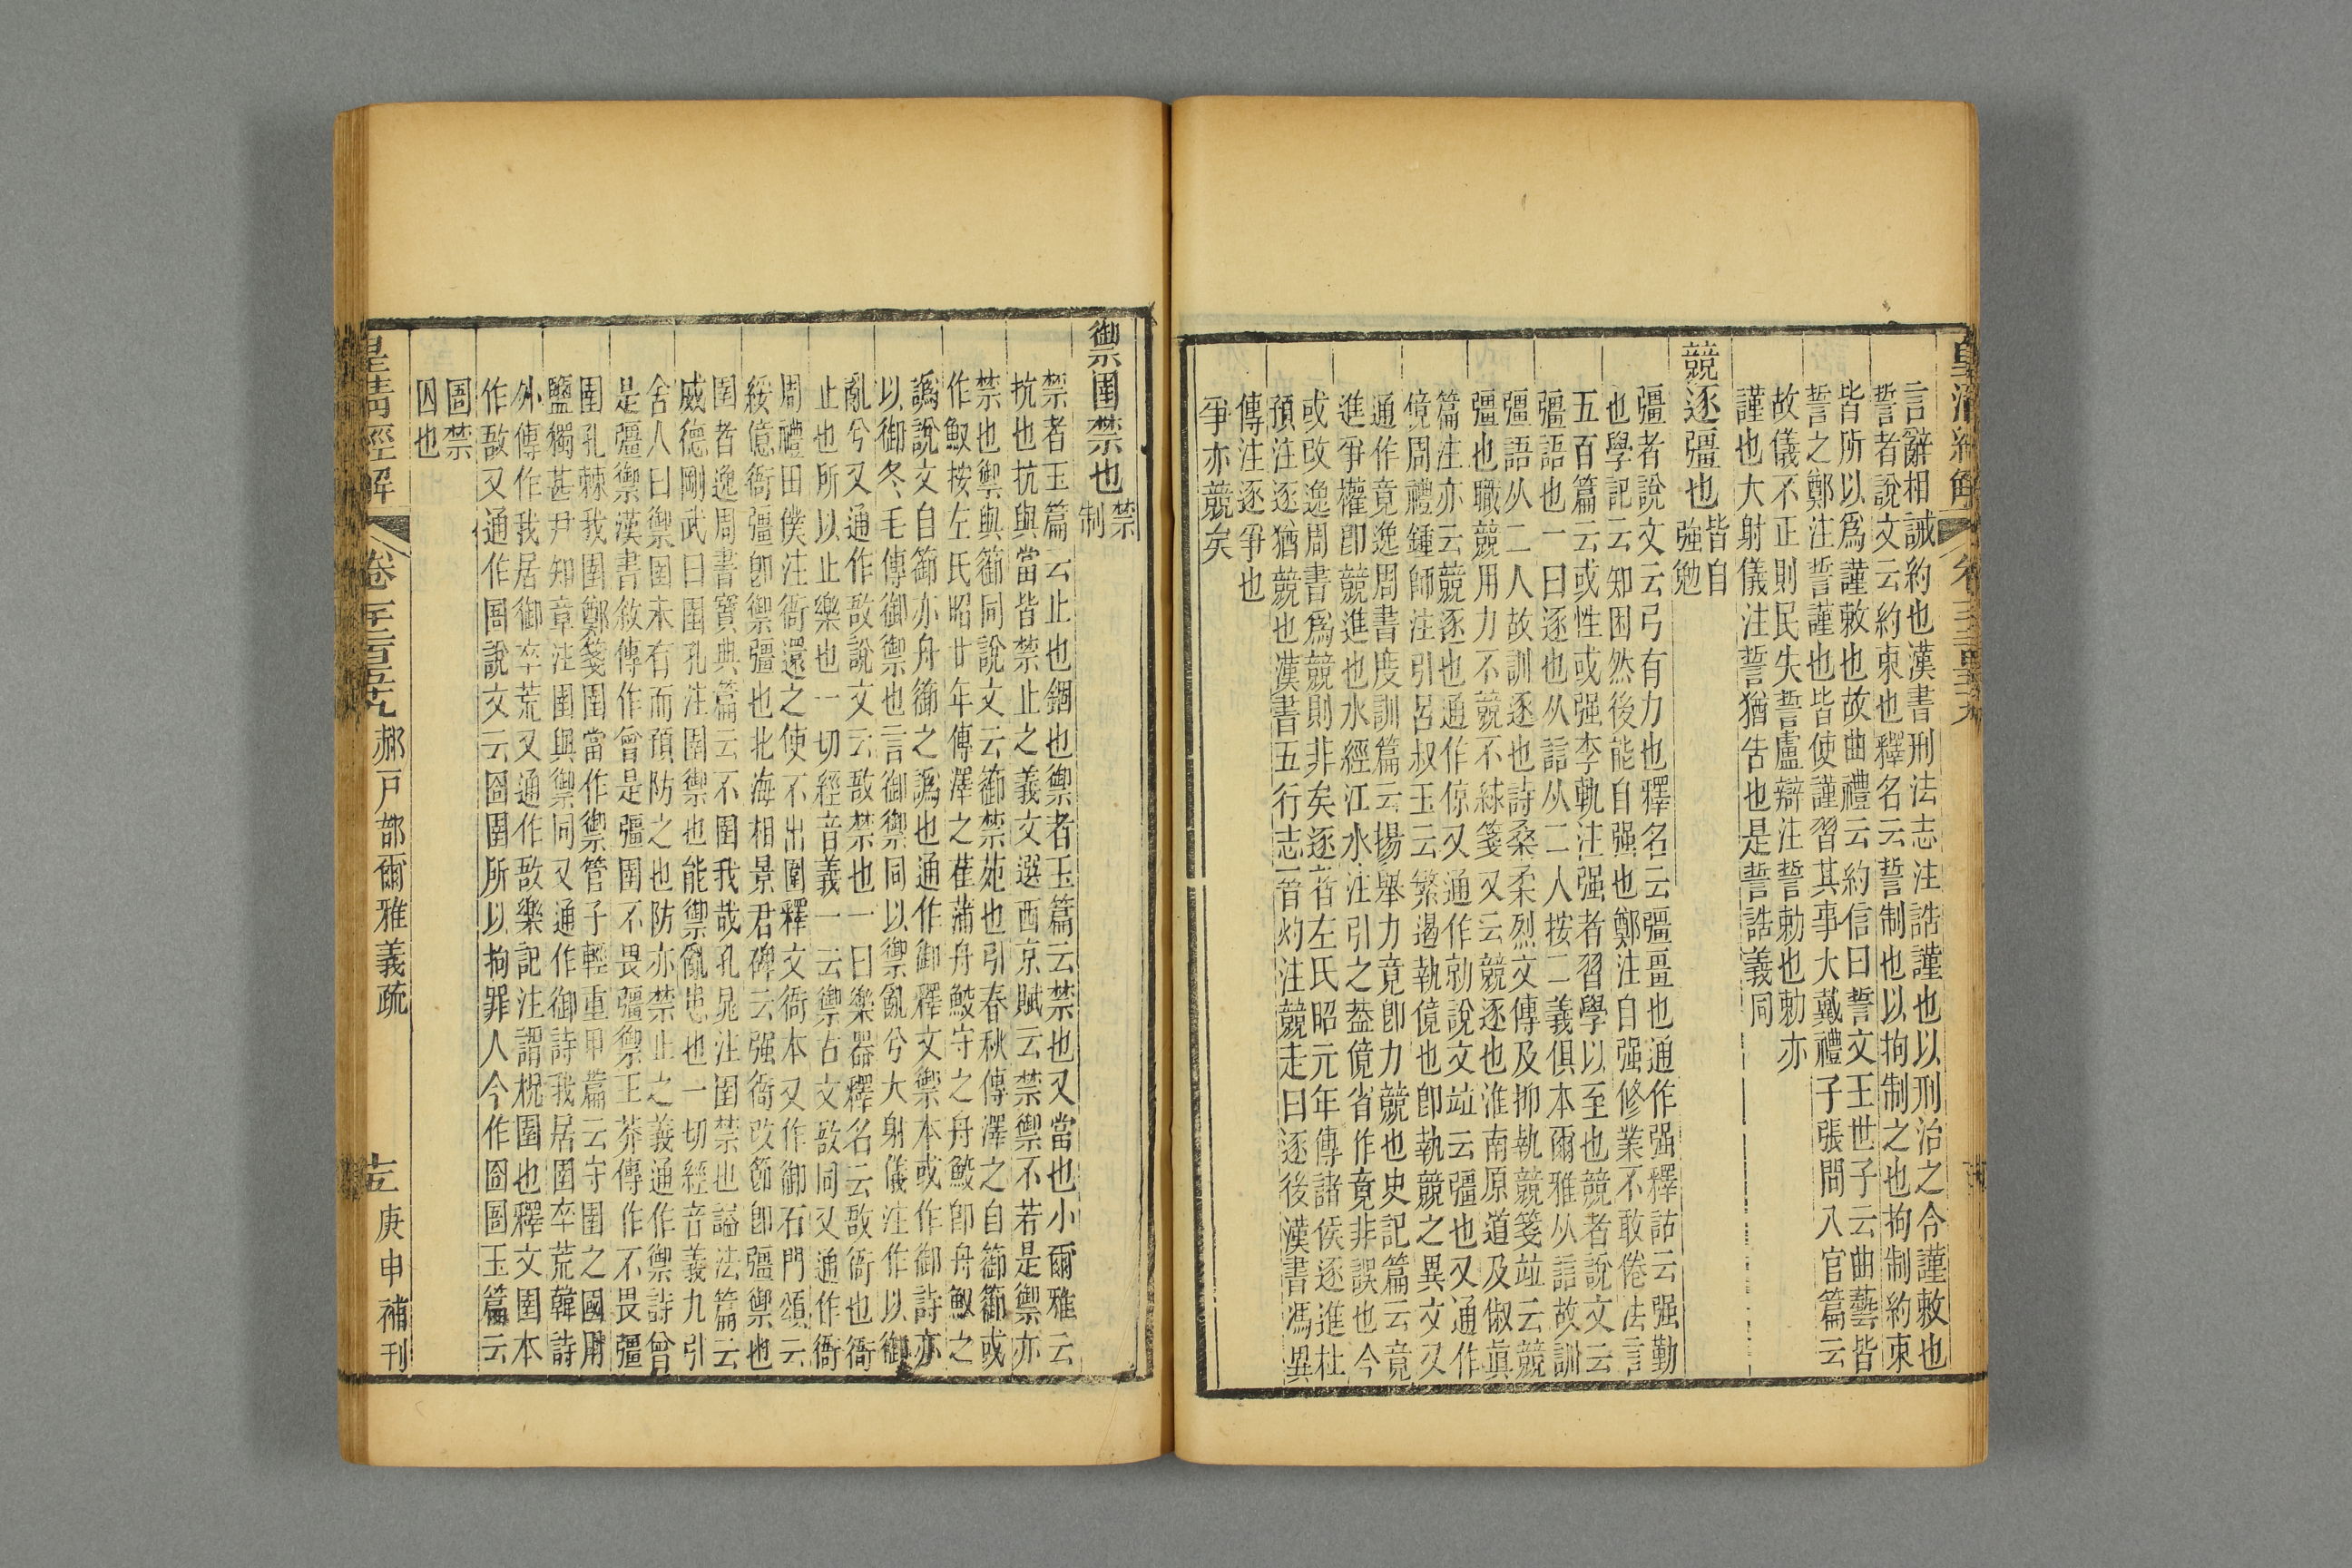 皇清經解
言辭相誡約也漢書刑法志注誥謹也以刑治之令謹敕也
誓者說文云約束也釋名云誓制也以拘制之也拘制約束
皆所以爲謹敕也故曲禮云約信曰誓文王世子云曲藝皆
誓之鄭注誓謹也皆使謹習其事大戴禮子張問入官篇云
故儀不正則民失誓盧辯注誓勅也勅亦
謹也大射儀注誓猶告也是誓誥義同
競逐彊也皆自
强勉
彊者說文云弓有力也釋名云彊畺也通作强釋詁云强勤
也學記云知困然後能自强也鄭注自强修業不敢倦法言
五百篇云或性或强李軌注强者習學以至也競者說文云
彊語也一曰逐也从誩从二人按二義俱本爾雅从誩故訓
彊語从二人故訓逐也詩桑柔烈文傳及抑執競箋竝云競
彊也職競用力不競不絿箋又云競逐也淮南原道及俶眞
篇注亦云競逐也通作倞又通作勍說文竝云彊也又通作
傹周禮鍾師注引呂叔玉云繁遏執傹也卽執競之異文又
通作竟逸周書度訓篇云揚舉力竟卽力競也史記篇云竟
進爭權卽競進也水經江水注引之葢傹省作竟非誤也今
或改逸周書爲競則非矣逐者左氏昭元年傳諸侯逐進杜
預注逐猶競也漢書五行志一晉灼注競走曰逐後漢書馮異
傳注逐爭也
爭亦競矣
禦圉禁也禁
制
禁者玉篇云止也錮也禦者玉篇云禁也又當也小爾雅云
抗也抗與當皆禁止之義文選西京賦云禁禦不若是禦亦
禁也禦與籞同說文云籞禁苑也引春秋傳澤之自籞籞或
作䱷按左氏昭廿年傳澤之萑蒲舟鮫守之舟鮫卽舟䱷之
譌說文自籞亦舟籞之譌也通作御釋文禦本或作御詩亦
以御冬毛傳御禦也言御禦同以禦亂兮大射儀注作以御
亂兮又通作敔說文云敔禁也一曰樂器釋名云敔衙也衙
止也所以止樂也一切經音義一云禦古文敔同又通作衙
周禮田僕注衙還之使不出圍釋文衙本又作御石門頌云
綏億衙彊卽禦彊也北海相景君碑云强衙改節卽彊禦也
圉者逸周書寶典篇云不圉我哉孔晁注圉禁也謚法篇云
威德剛武曰圉孔注圉禦也能禦亂患也一切經音義九引
舍人曰禦圉未有而預防之也防亦禁止之義通作禦詩曾
是彊禦漢書敘傳作曾是彊圉不畏彊禦王莽傳作不畏彊
圉孔棘我圉鄭箋圉當作禦管子輕重甲篇云守圉之國用
鹽獨甚尹知章注圉與禦同又通作御詩我居圉卒荒韓詩
外傳作我居御卒荒又通作敔樂記注謂柷圉也釋文圉本
作敔又通作圄說文云圄圉所以拘罪人今作圄圄玉篇云
圄禁
囚也
皇清經解 卷一千二百五十九 郝戸部爾雅義疏 十三 庚申補刊